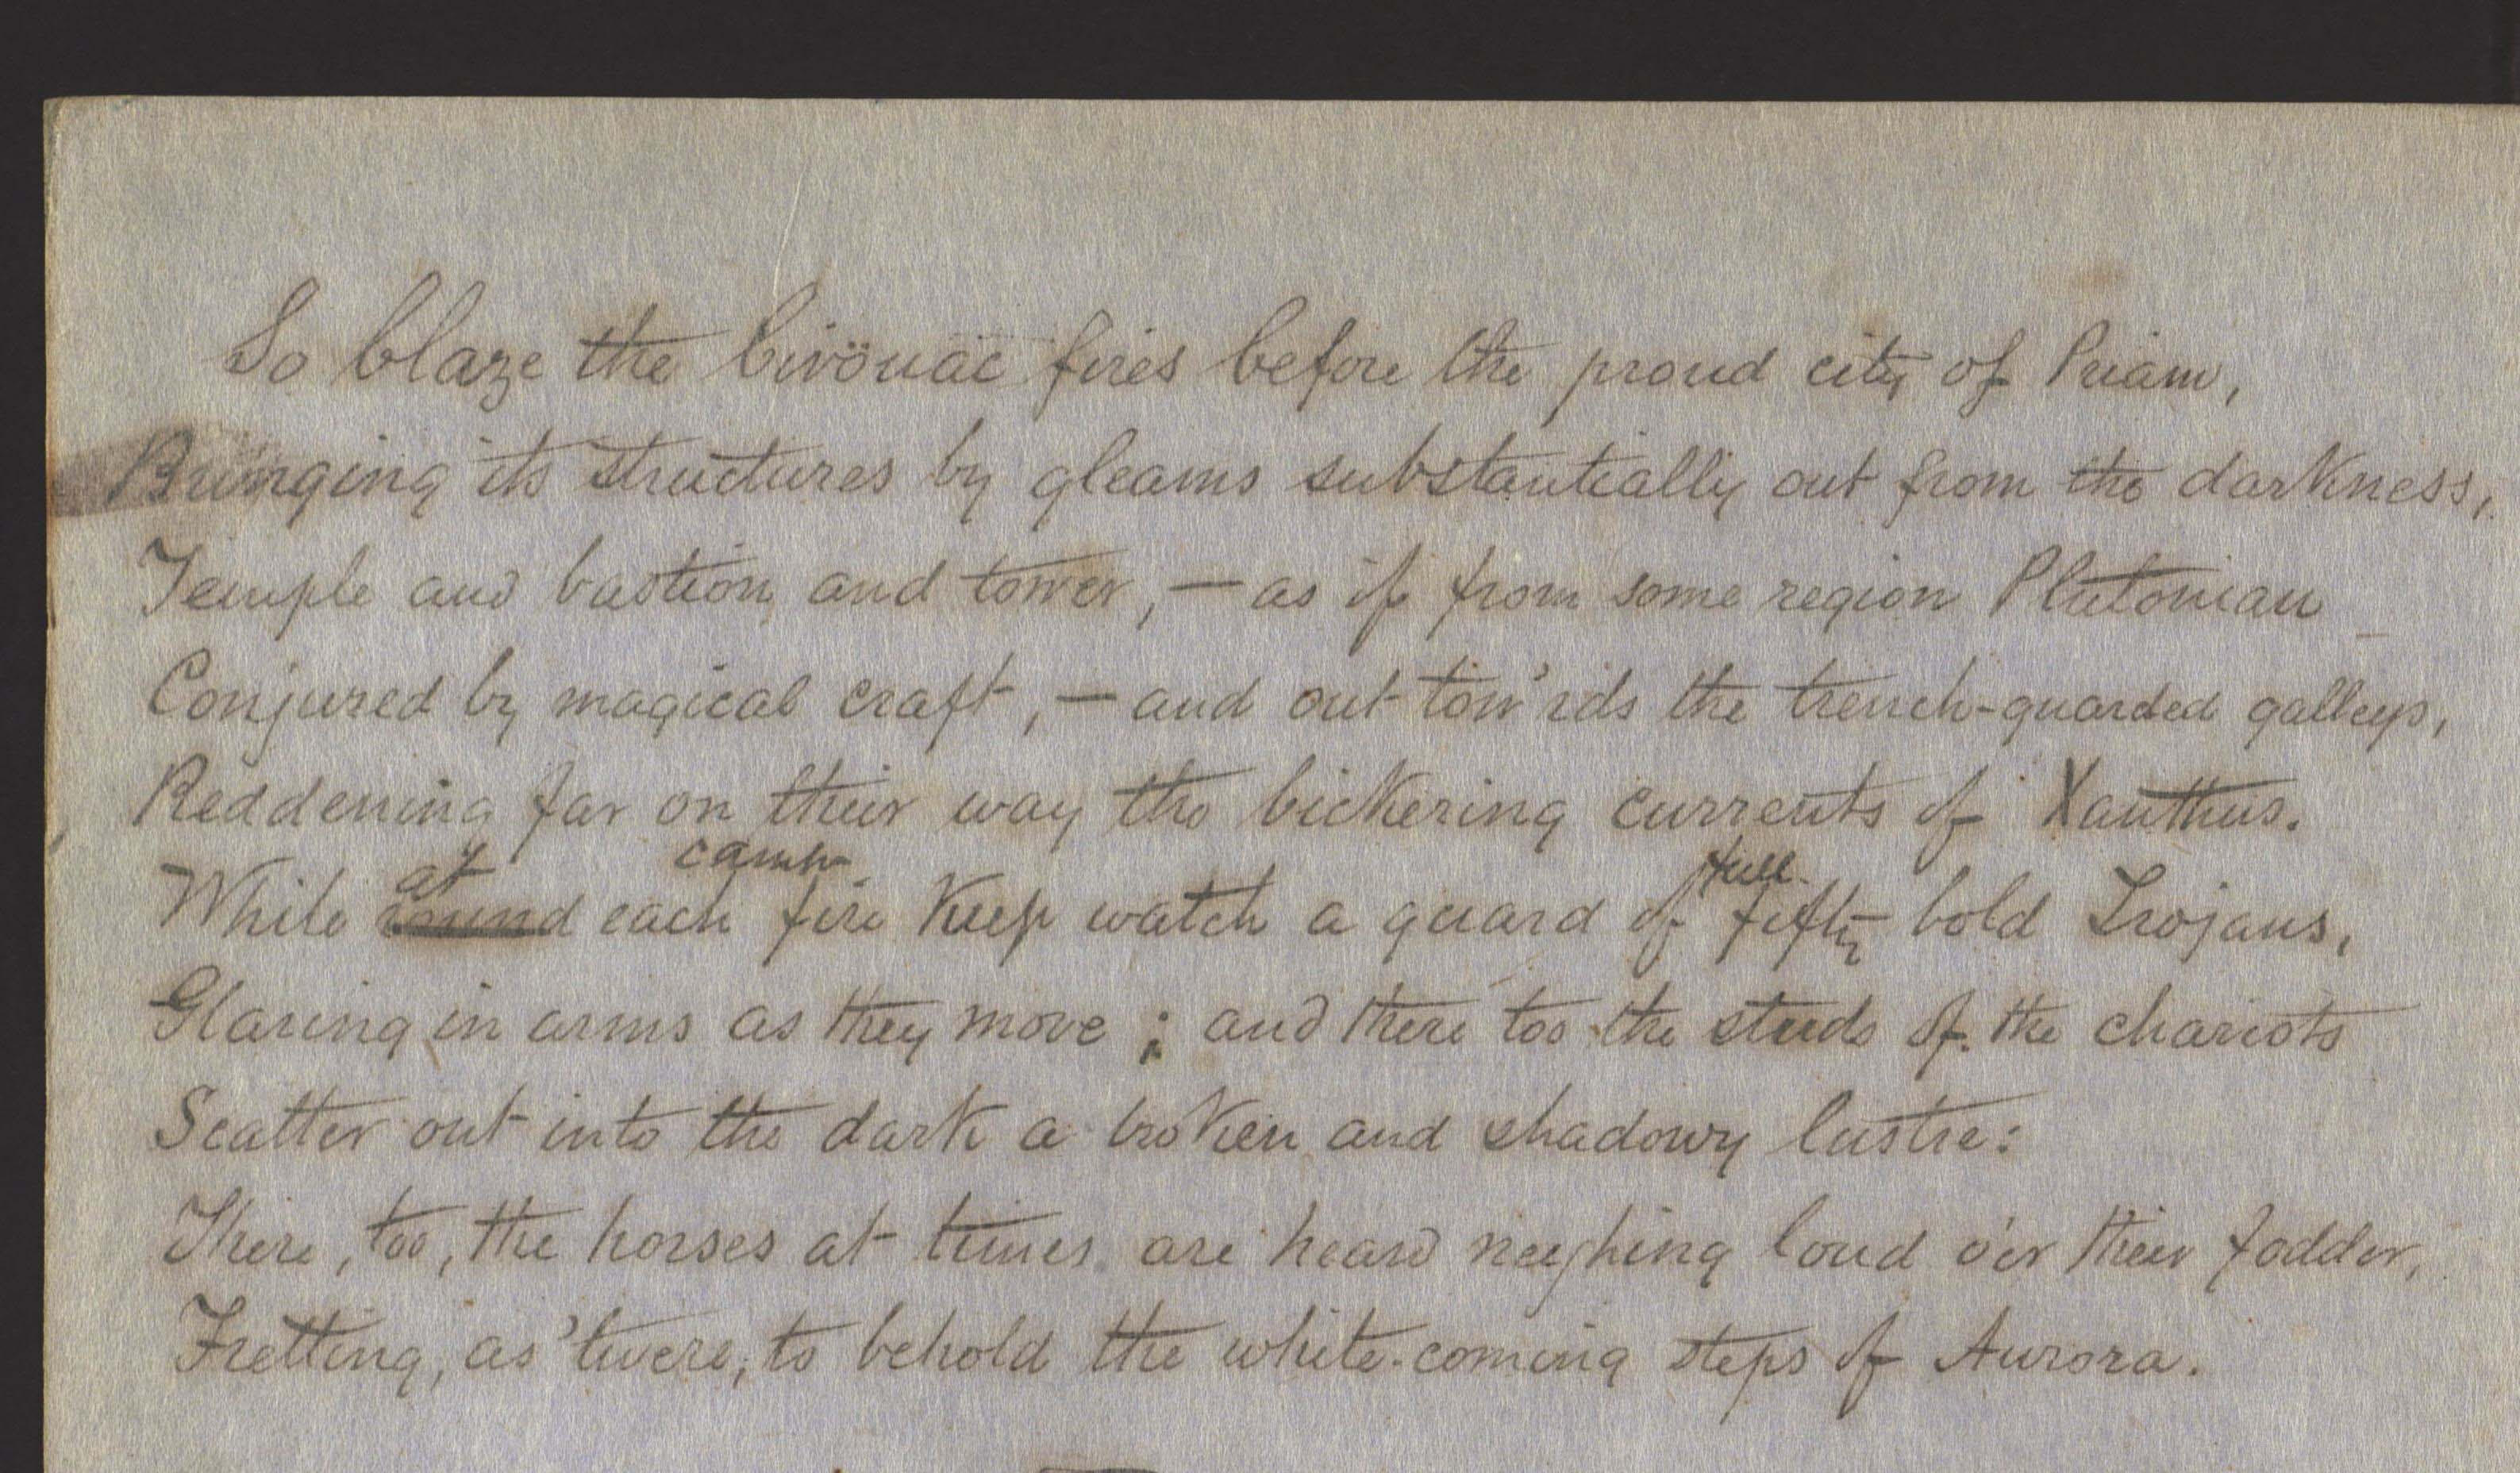 So blaze the bivöuäc fires before the proud city of Priam,
Bringing its structures by gleams substantially out from the darkness,
Temple and bastion and tower, — as if from some region Plutonian
Conjured by magical craft, — and out tow'rds the trench-guarded galleys,
Reddening far on their way the bickering currents of Xanthus.
at camp full
While round each fire keep watch a guard of fifty bold Trojans,
Glaring in arms as they move; and there too the steeds of the chariots
Scatter out into the dark a broken and shadowy lustre:
There, too, the horses at times are heard neighing loud o'er their fodder,
Fretting, as 'twere, to behold the white-coming steps of Aurora.